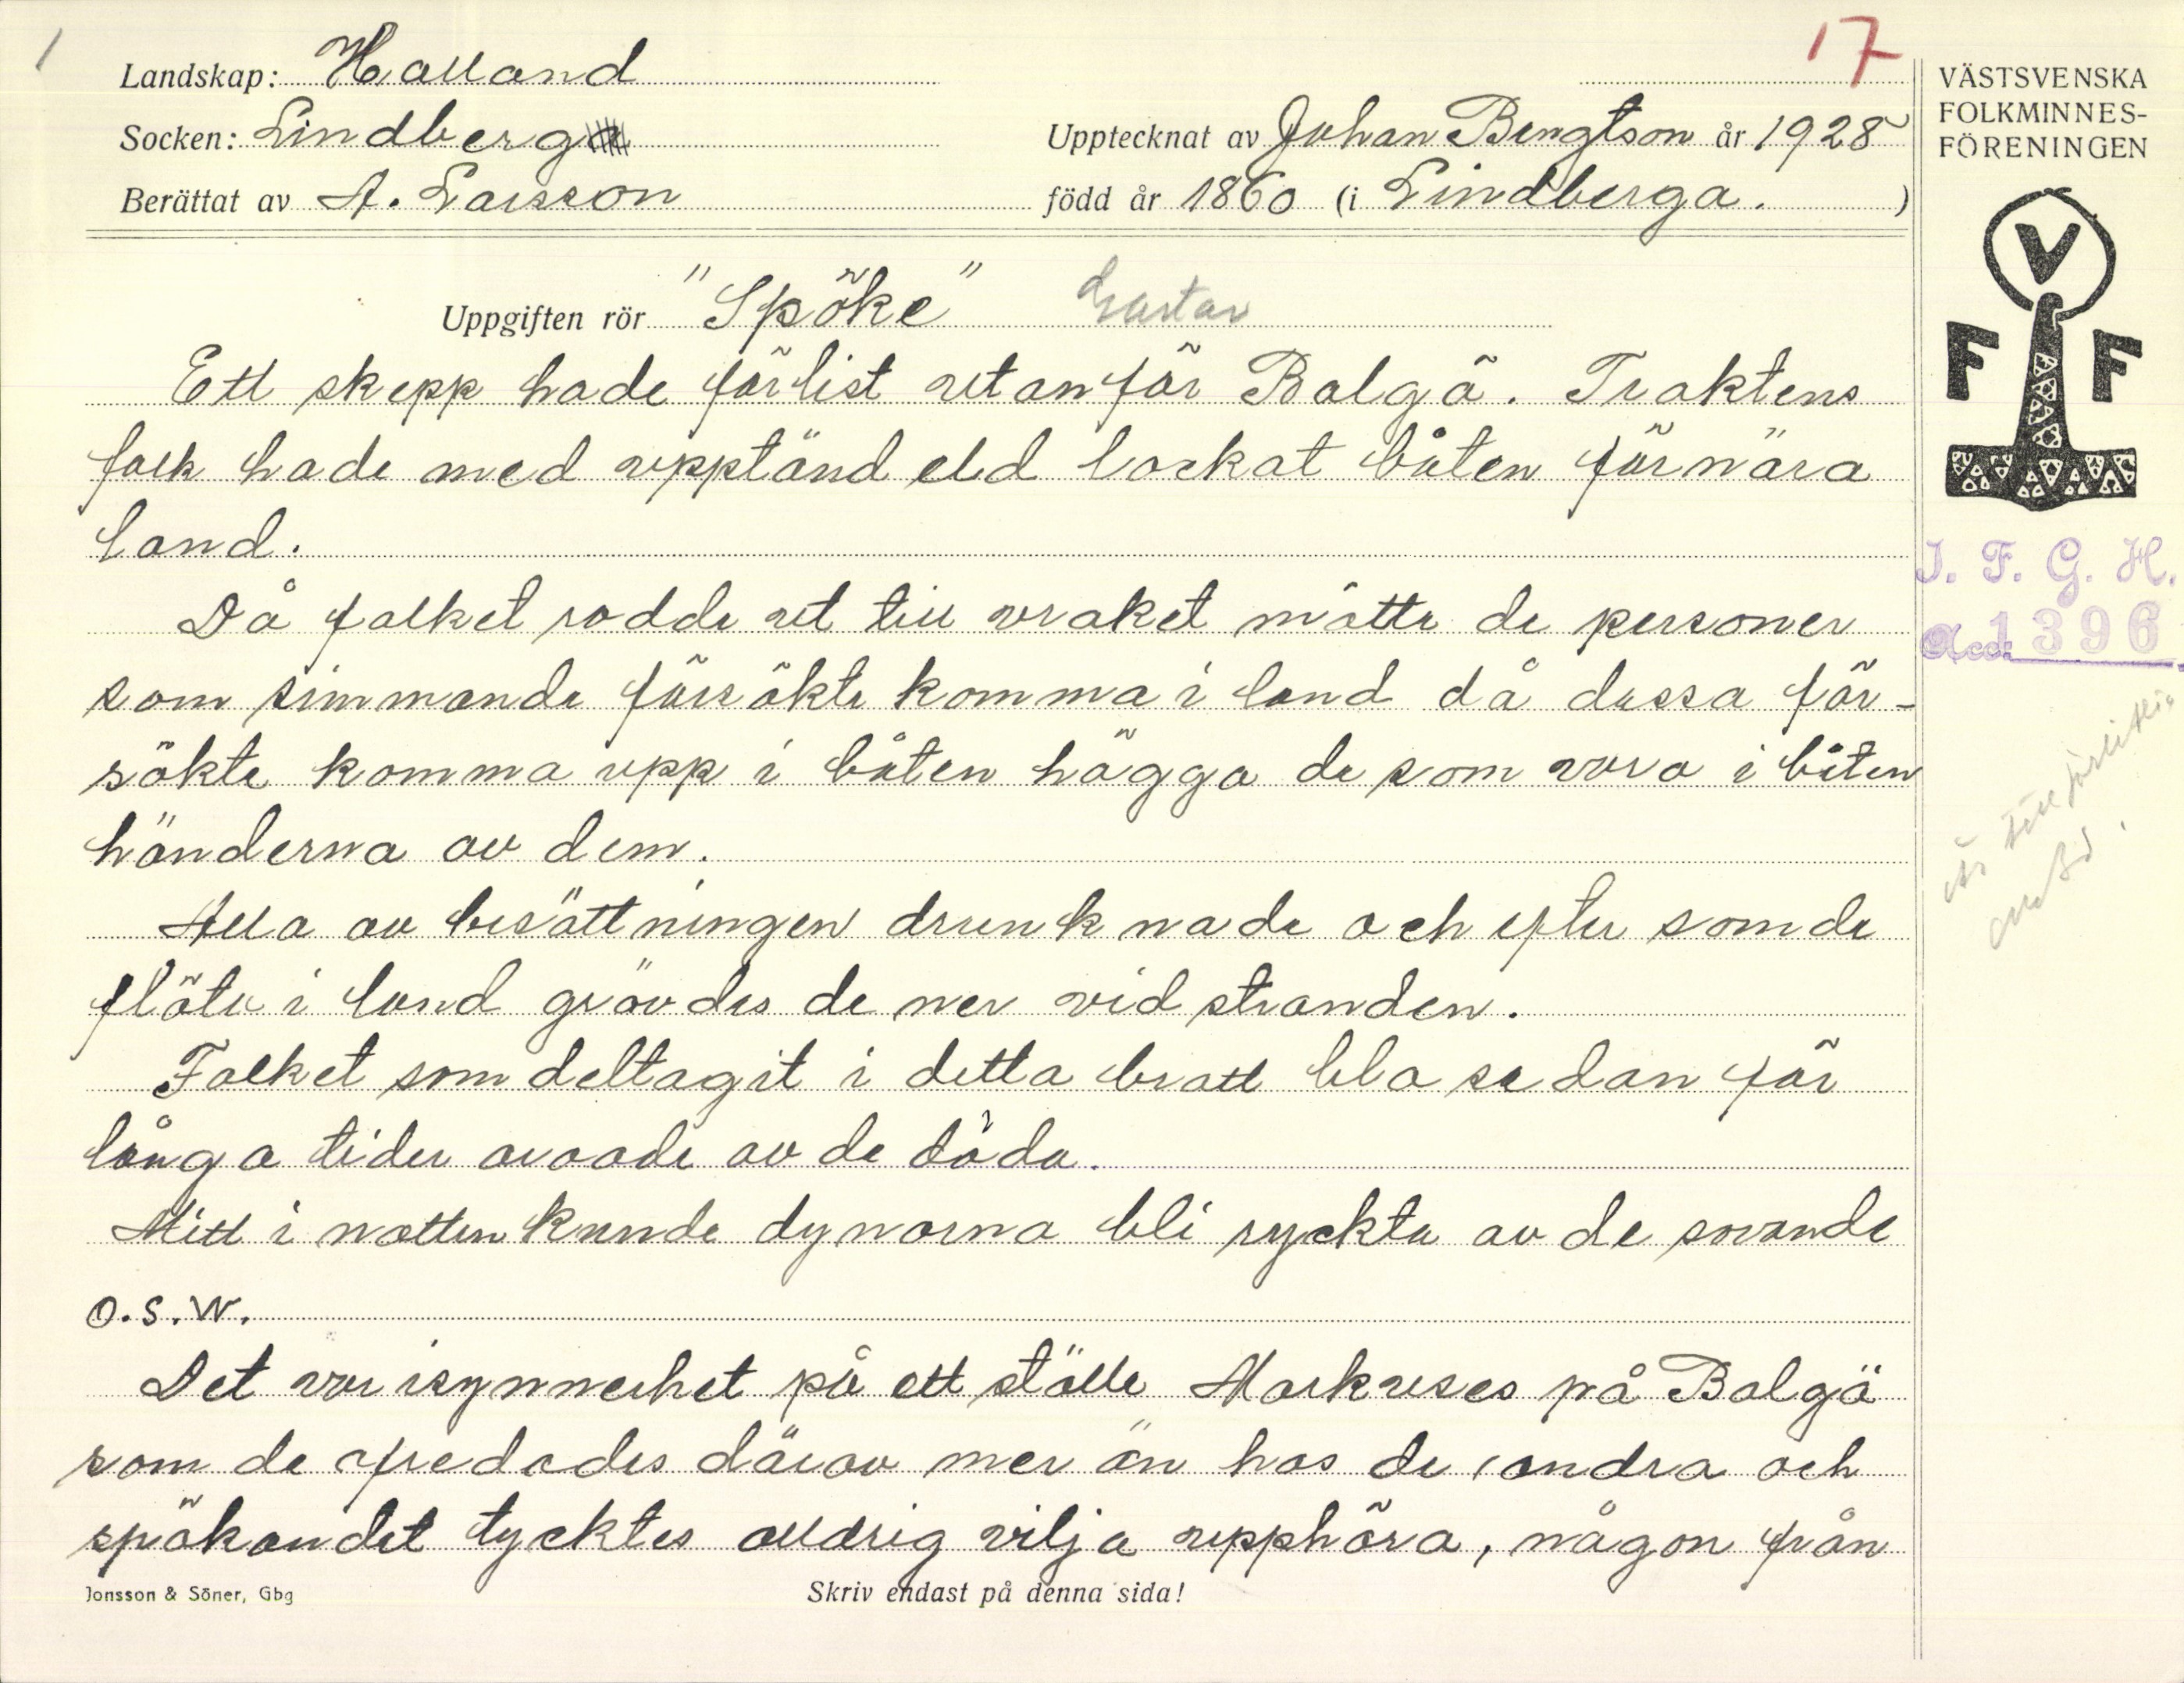 1
17
Landskap: Halland
Socken: Lindberg
Upptecknat av Johan Bengtson år 1928
Berättat av A. Larsson
född år 1860 (i Lindberga.)
VÄSTSVENSKA
FOLKMINNES-
FÖRENINGEN
V
F F
I. F. G. H.
Acc: 1396
Uppgiften rör "Spöke" Gastar
Ett skepp hade förlist utanför Balgö. Traktens
folk hade med upptänd eld lockat båten förnära
land.
Då folket rodde ut till vraket mötte de personer
som simmande försökte komma i land då dessa för-
sökte komma upp i båten högga de som voro i båten
händerna av dem.
Alla av besättningen drunknade och efter som de
flöto i land grävdes de ner vid stranden.
Folket som deltagit i detta brott blo sedan för
långa tider oroade av de döda.
Mitt i natten kunde dynorna bli ryckta av de sovande
o.s.w.
Det var isynnerhet på ett ställe Markuses på Balgö
som de ofredades därav mer än hos de andra och
spökandet tycktes alldrig vilja upphöra, någon från
Jonsson & Söner, Gbg
Skriv endast på denna sida!